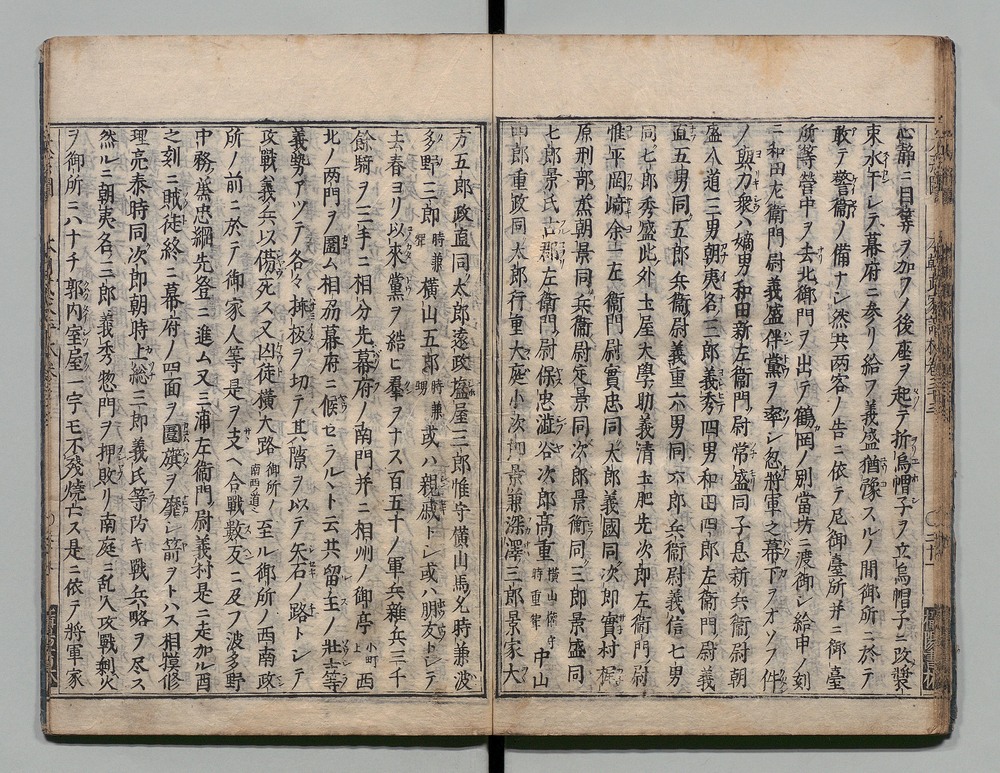 心静ニ目算ヲ加フノ後座ヲ起テ折烏帽子ヲ立烏帽子ニ改装
束水干シテ幕府ニ参リ給フ義盛猶豫スルノ間御所ニ於テ
敢テ警衞ノ備ナシ然共両客ノ告ニ依テ尼御臺所并ニ御臺
所等營中ヲ去北御門ヲ出テ鶴岡ノ別當坊ニ渡御シ給申ノ刻
ニ和田左衞門尉義盛伴黨ヲ率シ忽將軍之幕下ヲオソフ件
ノ與力衆ハ嫡男和田新左衞門尉常盛同子息新兵衞尉朝
盛入道三男朝夷名三郎義秀四男和田四郎左衞門尉義
直五男同五郎兵衞尉義重六男同六郎兵衞尉義信七男
同七郎秀盛此外土屋大學助義清土肥先次郎左衞門尉
惟平岡崎余一左衞門尉實忠同太郎義國同次郎實村梶
原刑部烝朝景同兵衞尉定景同次郎景衡同三郎景盛同
七郎景氏古郡左衞門尉保忠澁谷次郎髙重横山權守時重聟中山
四郎重政同太郎行重大庭小次郎景兼深澤三郎景家大
方五郎政直同太郎遠政塩屋三郎惟守横山馬允時兼波
多野三郎時兼聟横山五郎時兼甥或ハ親戚トシ或ハ朋友トシテ
去春ヨリ以來黨ヲ結ヒ羣ヲナス百五十ノ軍兵雜兵三千
餘騎ヲ三手ニ相分先幕府ノ南門并ニ相州ノ御亭小町上西
北ノ両門ヲ圍ム相劦幕府ニ候セラルヽト云共留主ノ壯士等
義勢アツテ各々挾板ヲ切テ其隙ヲ以テ矢石ノ路トシテ
攻戰義兵以傷死ス又凶徒横大路御所ノ南西道也至ル御所ノ西南政
所ノ前ニ於テ御家人等是ヲ支ヘ合戰數反ニ及フ波多野
中務烝忠綱先登ニ進ム又三浦左衞門尉義村是ニ走加ル酉
之刻ニ賊徒終ニ幕府ノ四面ヲ圍旗ヲ靡シ箭ヲトハス相摸修
理亮泰時同次郎朝時上總三郎義氏等防キ戰兵略ヲ尽ス
然ルニ朝夷名三郎義秀惣門ヲ押敗リ南庭ニ乱入攻戰剰火
ヲ御所ニハナチ郭内室屋一宇モ不殘燒亡ス是ニ依テ將軍家